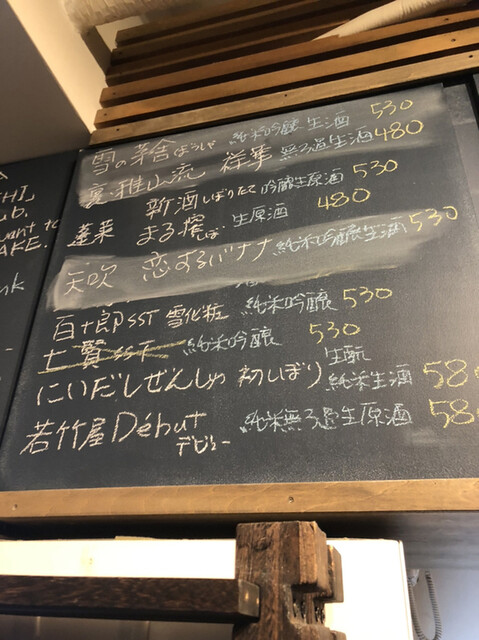 雪の茅舎 ぼうしゃ 純米吟醸生酒 530
裏・雅山流 祥華 無ろ過生酒 480
新酒 しぼりたて 吟醸生原酒 530
蓬莱 まる搾 生原酒 480
天吹 恋するバナナ 純米吟醸生酒 530
百十郎SST 雪化粧 純米吟醸 530
純米吟醸 530
にいだしぜんしゅ 初しぼり 生酛 純米生酒 58
若竹屋 Début デビュー 純米無ろ過生原酒 58
HI]
ub.
want to
AKE.
nk